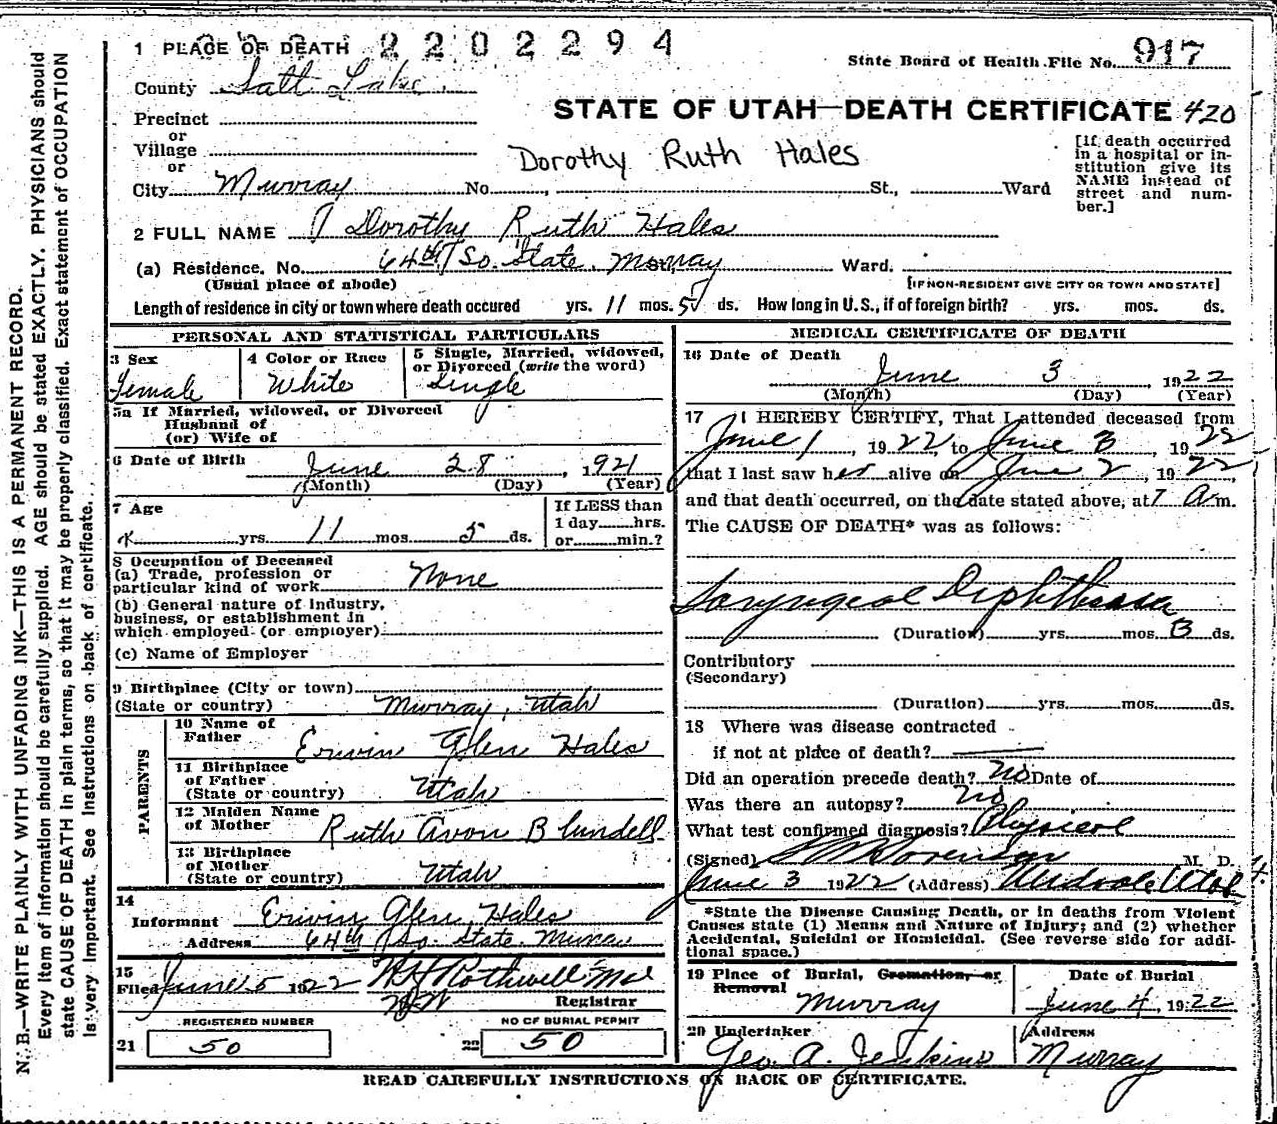 N. B.—WRITE PLAINLY WITH UNFADING INK—THIS IS A PERMANENT RECORD.
Every item of information should be carefully supplied. AGE should be stated EXACTLY. PHYSICIANS should
state CAUSE OF DEATH in plain terms, so that it may be properly classified. Exact statement of OCCUPATION
is very important. See instructions on back of certificate.
1 PLACE OF DEATH 2202294
State Board of Health File No. 917
County Salt Lake
STATE OF UTAH—DEATH CERTIFICATE 420
Precinct
or
Village
or
Dorothy Ruth Hales
City Murray No. , St., Ward
[If death occurred
in a hospital or in-
stitution give its
NAME instead of
street and num-
ber.]
2 FULL NAME Dorothy Ruth Hales
(a) Residence. No. 64th So. State. Murray Ward.
(Usual place of abode) [IF NON-RESIDENT GIVE CITY OR TOWN AND STATE]
Length of residence in city or town where death occured yrs. 11 mos. 5 ds. How long in U.S., if of foreign birth? yrs. mos. ds.
PERSONAL AND STATISTICAL PARTICULARS
3 Sex
Female
4 Color or Race
White
5 Single, Married, widowed,
or Divorced (write the word)
Single
5a If Married, widowed, or Divorced
Husband of
(or) Wife of
6 Date of Birth June 28, 1921
(Month) (Day) (Year)
7 Age
yrs. 11 mos. 5 ds.
If LESS than
1 day hrs.
or min.?
8 Occupation of Deceased
(a) Trade, profession or
particular kind of work None
(b) General nature of Industry,
business, or establishment in
which employed (or employer)
(c) Name of Employer
9 Birthplace (City or town)
(State or country) Murray, Utah
PARENTS
10 Name of
Father Erwin Glen Hales
11 Birthplace
of Father
(State or country) Utah
12 Maiden Name
of Mother Ruth Avon Blundell
13 Birthplace
of Mother
(State or country) Utah
14
Informant Erwin Glen Hales
Address 64th So. State. Murray
15
Filed June 5 1922 Rothwell
Registrar
REGISTERED NUMBER
21 50
NO OF BURIAL PERMIT
22 50
MEDICAL CERTIFICATE OF DEATH
16 Date of Death
June 3, 1922
(Month) (Day) (Year)
17 I HEREBY CERTIFY, That I attended deceased from
June 1, 1922, to June 3, 1922
that I last saw her alive on June 2, 1922
and that death occurred, on the date stated above, at 7 A m.
The CAUSE OF DEATH* was as follows:
Laryngeal Diphtheria
(Duration) yrs. mos. 3 ds.
Contributory
(Secondary)
(Duration) yrs. mos. ds.
18 Where was disease contracted
if not at place of death?
Did an operation precede death? no Date of
Was there an autopsy? no
What test confirmed diagnosis? Physical
(Signed) M. D.
June 3 1922 (Address) Midvale Utah
*State the Disease Causing Death, or in deaths from Violent
Causes state (1) Means and Nature of Injury; and (2) whether
Accidental, Suicidal or Homicidal. (See reverse side for addi-
tional space.)
19 Place of Burial, Cremation, or
Removal
Murray
Date of Burial
June 4, 1922
20 Undertaker
Geo. A. Jenkins
Address
Murray
READ CAREFULLY INSTRUCTIONS ON BACK OF CERTIFICATE.